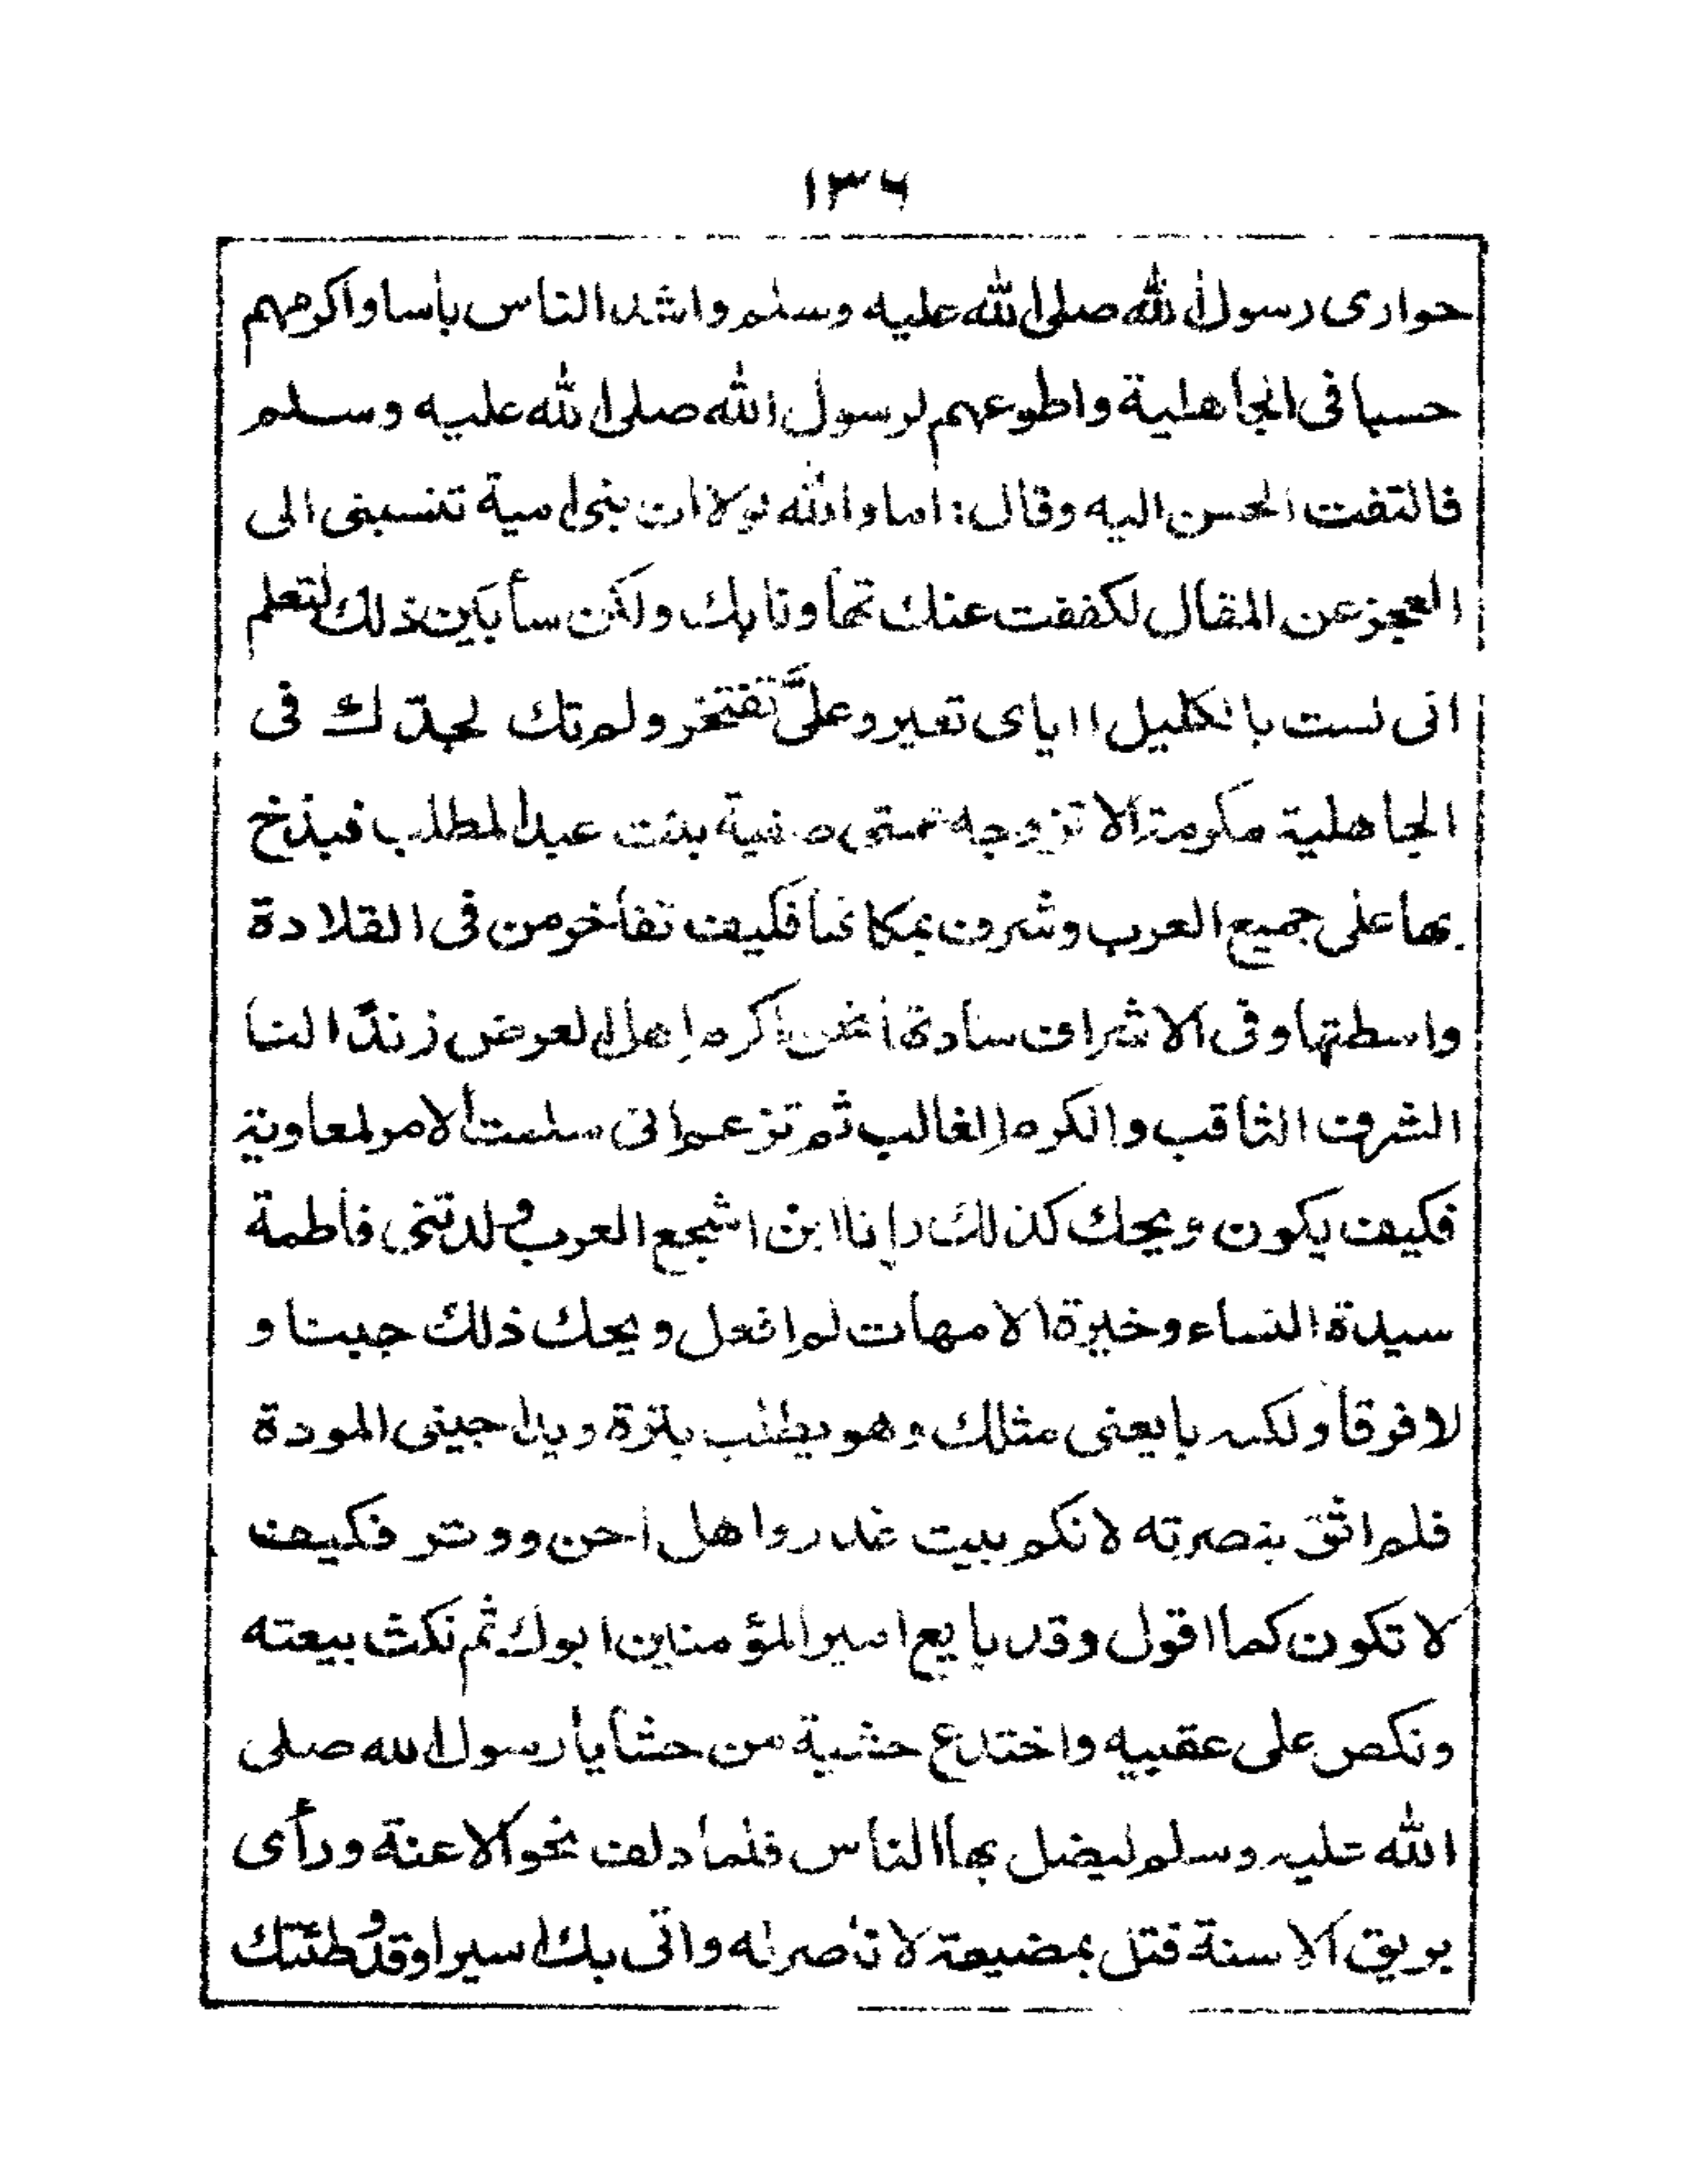 ١٣٦
حواری رسول الله صلی الله علیه وسلم واشد الناس باسا واکرمهم
حسبا فی الجاهلیة واطوعهم لرسول الله صلی الله علیه وسلم
فالتفت الحسن الیه وقال: اما والله لولا ان بنی امیة تنسبنی الی
العجز عن المقال لکففت عنک تهاونا بک ولکن سأبین ذلک لتعلم
انی لست بالکلیل اایای تعیر وعلیَّ تفتخر ولم تک لجدّک فی
الجاهلیة مکرمة الا تزوجه عمتی صفیة بنت عبد المطلب فبذخ
بها علی جمیع العرب وشرف بمکانها فکیف تفاخر من فی القلادة
واسطتها وفی الاشراف سادة نحن اکرم اهل العرض زندًا لنا
الشرف الثاقب والکرم الغالب ثم تزعم انی سلمت الامر لمعاویة
فکیف یکون ویحک کذلک وانا ابن اشجع العرب ولدتنی فاطمة
سیدة النساء وخیرة الامهات لم افعل ویحک ذلک جبنا و
لا فرقا ولکنه بایعنی مثلک وهو یطلب بترة ویداجینی المودة
فلم اثق بنصرته لانکم بیت غدر واهل احن ووتر فکیف
لا تکون کما اقول وقد بایع امیر المؤمنین ابوک ثم نکث بیعته
ونکص علی عقبیه واختدع حشیة من حشایا رسول الله صلی
الله علیه وسلم لیضل بها الناس فلما دلف نحو الاعنة ورأی
بریق الاسنة قتل بمضیعة لا ناصر له واتی بک اسیرا وقد وطئتک